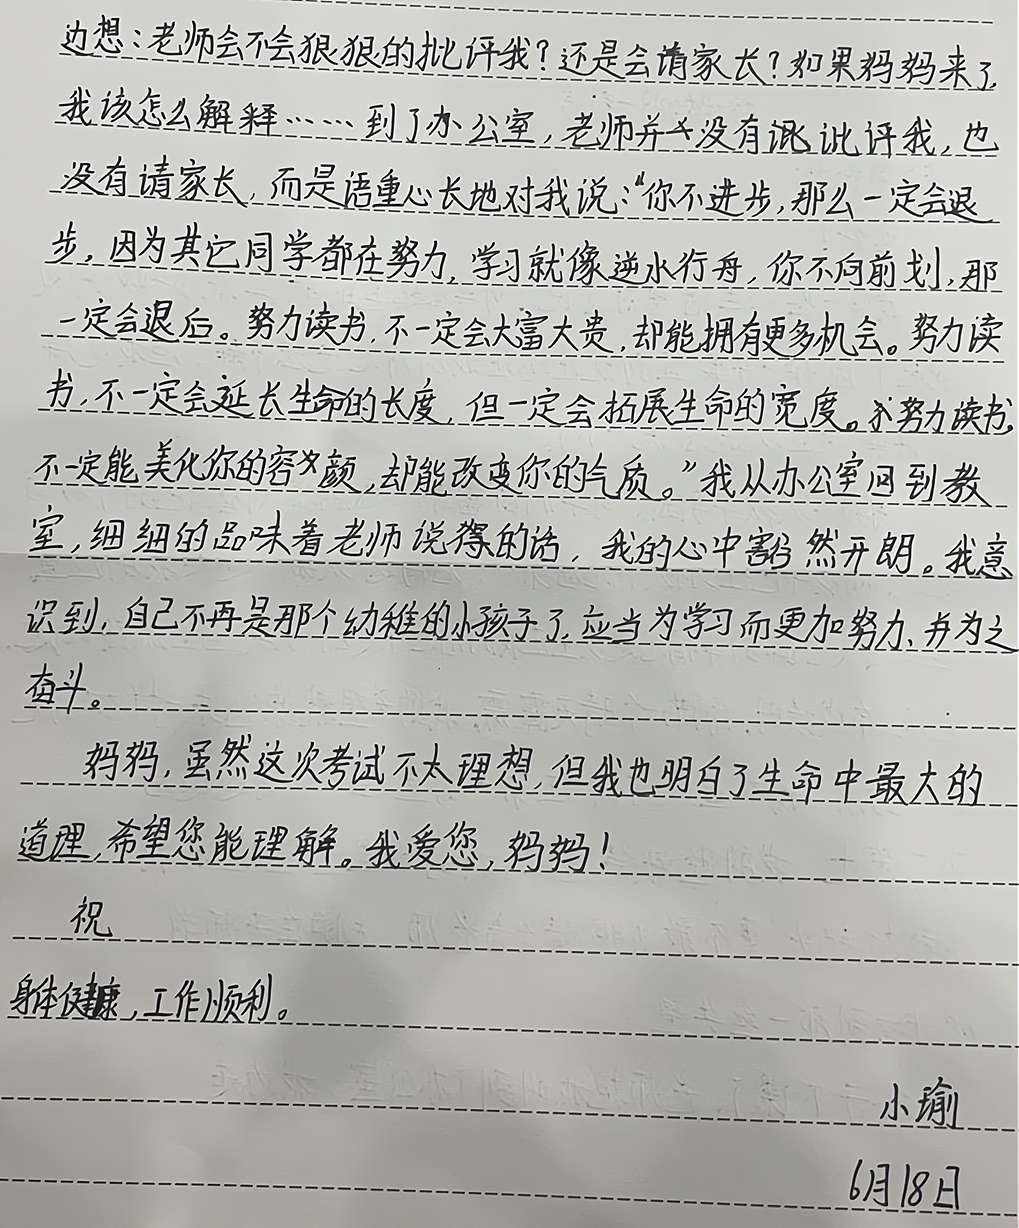 边想：老师会不会狠狠的批评我？还是会请家长？如果妈妈来了
我该怎么解释……到了办公室，老师并没有批评我，也
没有请家长，而是语重心长地对我说：“你不进步，那么一定会退
步，因为其它同学都在努力，学习就像逆水行舟，你不向前划，那
一定会退后。努力读书，不一定会大富大贵，却能拥有更多机会。努力读
书，不一定会延长生命的长度，但一定会拓展生命的宽度。努力读书，
不一定能美化你的容颜，却能改变你的气质。”我从办公室回到教
室，细细的品味着老师说得的话，我的心中豁然开朗。我意
识到，自己不再是那个幼稚的小孩子了，应当为学习而更加努力、并为之
奋斗。
妈妈，虽然这次考试不太理想，但我也明白了生命中最大的
道理，希望您能理解。我爱您，妈妈！
祝
身体健康，工作顺利。
小瑜
6月18日